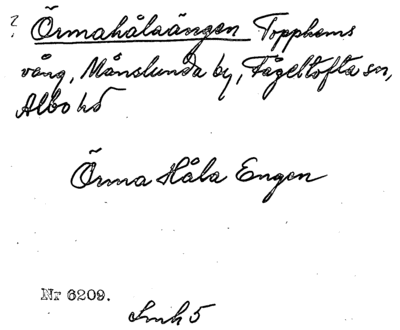 ? Örmahålaängen Topphems
vång, Månslunda by, Fågeltofta sn,
Albo hd
Örma Håla Engen
Nr 6209.
Smh 5